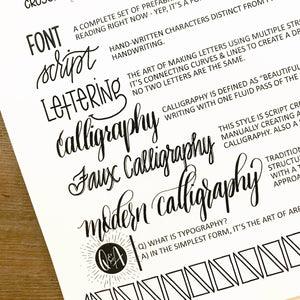 FONT
A COMPLETE SET OF PREFAB
READING RIGHT NOW - YEP, IT'S A FO
script
HAND-WRITTEN CHARACTERS DISTINCT FROM
HANDWRITING.
Lettering
THE ART OF MAKING LETTERS USING MULTIPLE STR
IT'S CONNECTING CURVES & LINES TO CREATE A D
NO TWO LETTERS ARE THE SAME.
Calligraphy
CALLIGRAPHY IS DEFINED AS "BEAUTIFUL
WRITING WITH ONE FLUID PASS OF THE
Faux Calligraphy
THIS STYLE IS SCRIPT CR
MANUALLY CREATING A
CALLIGRAPHY. ALSO A
modern calligraphy
TRADITION
STRUCTU
WITH A T
APPROAC
Q&A
Q) WHAT IS TYPOGRAPHY?
A) IN THE SIMPLEST FORM, IT'S THE ART OF ARR